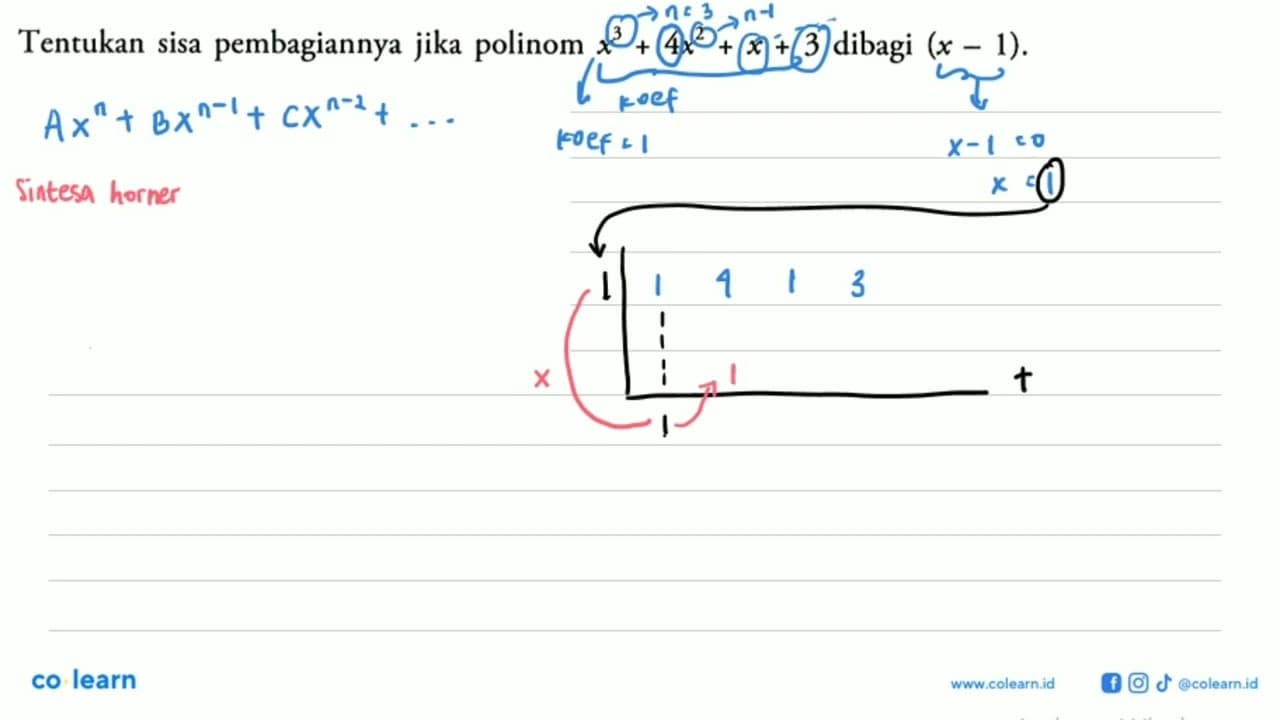 n = 3 n-1
Tentukan sisa pembagiannya jika polinom x³ + 4x² + x + 3 dibagi (x − 1).
koef
Axⁿ + Bxⁿ⁻¹ + Cxⁿ⁻² + ...
koef = 1
x-1 = 0
x = 1
Sintesa horner
1 1 4 1 3
x 1 +
1
co learn
www.colearn.id @colearn.id